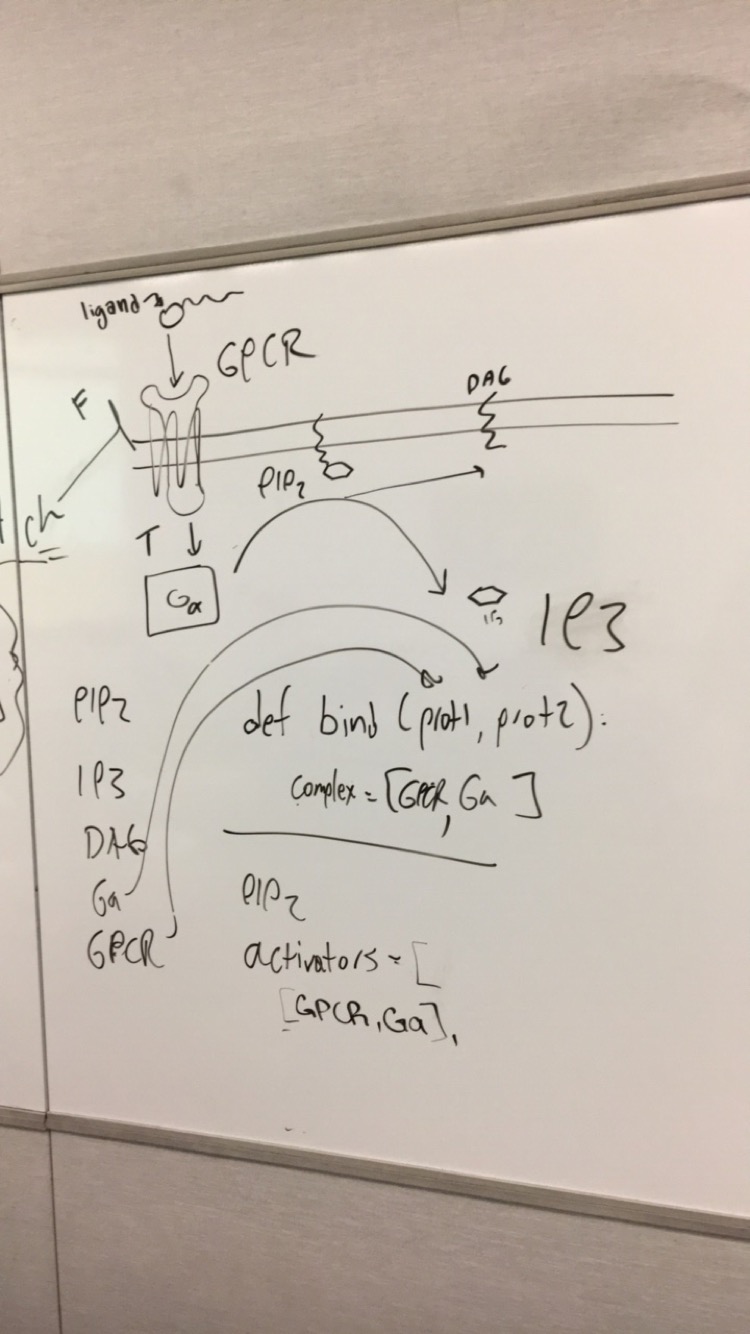 ligand
GPCR
F
DAG
PIP2
Ch
T
Gα
IP3
IP3
PIP2
IP3
DAG
Ga
GPCR
def bind (prot1, prot2):
complex = [GPCR, Ga]
PIP2
activators = [
[GPCR, Ga],